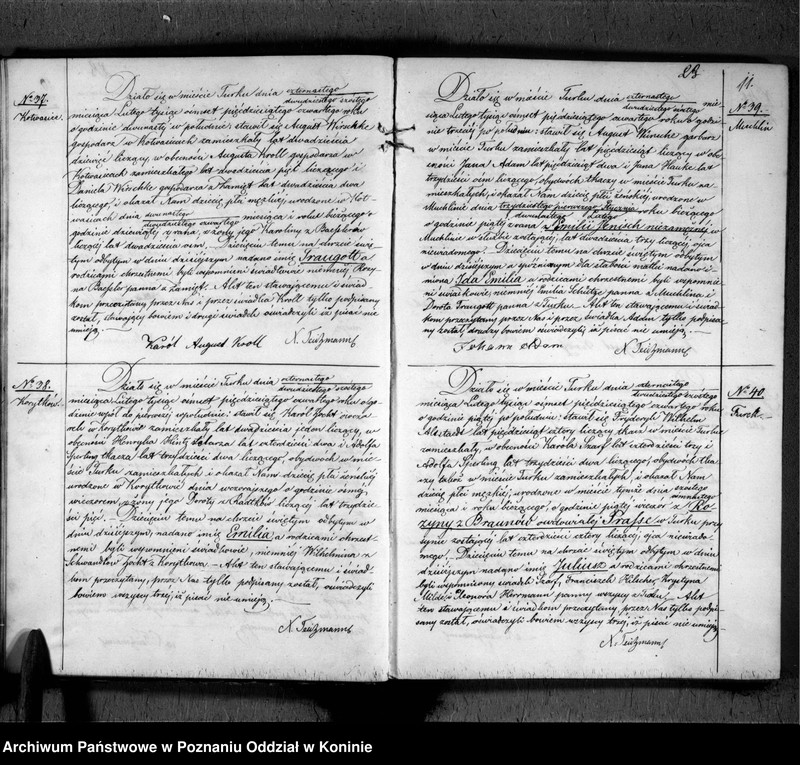 No 37.
Kotwasice.
Działo się w mieście Turku dnia czternastego
dwudziestego szóstego
miesiąca Lutego tysiąc ośmset pięćdziesiątego czwartego roku
o godzinie dwunastej w południe; stawił się August Wirschke
gospodarz w Kotwasicach zamieszkały lat dwadzieścia
dziewięć liczący, w obecności Augusta Kroll gospodarza w
Kotwasicach zamieszkałego lat dwadzieścia pięć liczącego i
Daniela Wirschke gospodarza z Żamięt lat dwadzieścia dwa
liczącego, i okazał Nam dziecię płci męzkiej urodzone w Kot-
wasicach dnia dwunastego
dwudziestego czwartego miesiąca i roku bieżącego o
godzinie dziewiątej z rana, z żony jego Karoliny z Baeslerów
liczącej lat dwadzieścia osm. Dziecięciu temu na chrzcie świę-
tym odbytym w dniu dzisiejszym nadano imię Traugott a
rodzicami chrzestnemi byli wspomnieni świadkowie niemniej Rozy-
na Baesler panna z Żamięt. Akt ten stawającemu i świad-
kom przeczytany przez Nas i przez świadka Kroll tylko podpisany
został, stawający bowiem i drugi świadek oświadczyli iż pisać nie
umieją.
Karol August Kroll N. Teitzmann
No 38.
Korytków.
Działo się w mieście Turku dnia czternastego
dwudziestego szóstego
miesiąca Lutego tysiąc ośmset pięćdziesiątego czwartego roku o go-
dzinie wpół do pierwszej w południe: stawił się Karol
w Korytkowie zamieszkały lat dwadzieścia jeden liczący, w
obecności Henryka Hintz lat czterdzieści dwa i Adolfa
Sperling tkacza lat trzydzieści dwa liczącego, obydwóch w mie-
ście Turku zamieszkałych i okazał Nam dziecię płci żeńskiej
urodzone w Korytkowie dnia wczorajszego o godzinie osmej
wieczorem, z żony jego Doroty z Radtków liczącej lat trzydzie-
ści pięć. Dziecięciu temu na chrzcie świętym odbytym w
dniu dzisiejszym, nadano imię Emilia a rodzicami chrzest-
nemi byli wspomnieni świadkowie, niemniej Wilhelmina z
z Korytkowa. Akt ten stawającemu i świad-
kom przeczytany, przez Nas tylko podpisany został, oświadczyli
bowiem wszyscy trzej, iż pisać nie umieją.
N. Teitzmann
23
11.
No 39.
Muchlin
Działo się w mieście Turku dnia czternastego
dwudziestego szóstego mie-
siąca Lutego tysiąc ośmset pięćdziesiątego czwartego roku o godzi-
nie trzeciej po południu; stawił się August Wirscke garbarz
w mieście Turku zamieszkały lat pięćdziesiąt liczący w obe-
cności Jana Adam lat pięćdziesiąt dwa i Jana Hauke lat
trzydzieści osm liczącego, obydwóch tkaczy w mieście Turku za-
mieszkałych, i okazał Nam dziecię płci żeńskiej, urodzone w
Muchlinie dnia trzydziestego pierwszego Stycznia
dwunastego Lutego roku bieżącego
o godzinie piątej z rana z Emilii Jenisch niezamężnej w
Muchlinie w służbie zostającej, lat dwadzieścia trzy liczącej ojca
niewiadomego. Dziecięciu temu na chrzcie świętym odbytym
w dniu dzisiejszym a spóźnionym dla słabości matki nadano i-
miona Ida Emilia a rodzicami chrzestnemi byli wspomnie-
ni świadkowie, niemniej Emilia Schultze panna z Muchlina i
Dorota Traugott panna z Turku. Akt ten stawającemu i świad-
kom przeczytany przez Nas i przez świadka Adam tylko podpisa-
ny został, drudzy bowiem oświadczyli iż pisać nie umieją.
Johann Adam
N. Teitzmann
No 40.
Turek
Działo się w mieście Turku dnia czternastego
dwudziestego szóstego
miesiąca Lutego tysiąc ośmset pięćdziesiątego czwartego roku
o godzinie piątej po południu: stawił się Fryderyk Wilhelm
lat pięćdziesiąt cztery liczący tkacz w mieście Turku
zamieszkały, w obecności Karola Szarf lat czterdzieści trzy i
Adolfa Sperling lat trzydzieści dwa liczącego, obydwóch tka-
czy także w mieście Turku zamieszkałych, i okazał Nam
dziecię płci męzkiej, urodzone w mieście tymże dnia szóstego
osmnastego
miesiąca i roku bieżącego, o godzinie piątej wieczór z Ro-
zyny z Braunów owdowiałej Prafse w Turku przy
synie zostającej lat czterdzieści cztery liczącej, ojca niewiado-
mego. Dziecięciu temu na chrzcie świętym odbytym w dniu
dzisiejszym nadano imię Juliusz a rodzicami chrzestnemi
byli wspomniony świadek Szarf, Franciszek Hilscher, Krystyna
Milde i Eleonora Herrmann panny wszyscy z Turku. Akt
ten stawającemu i świadkom przeczytany, przez Nas tylko podpi-
sany został, oświadczyli bowiem wszyscy trzej, iż pisać nie umieją.
N. Teitzmann
Archiwum Państwowe w Poznaniu Oddział w Koninie